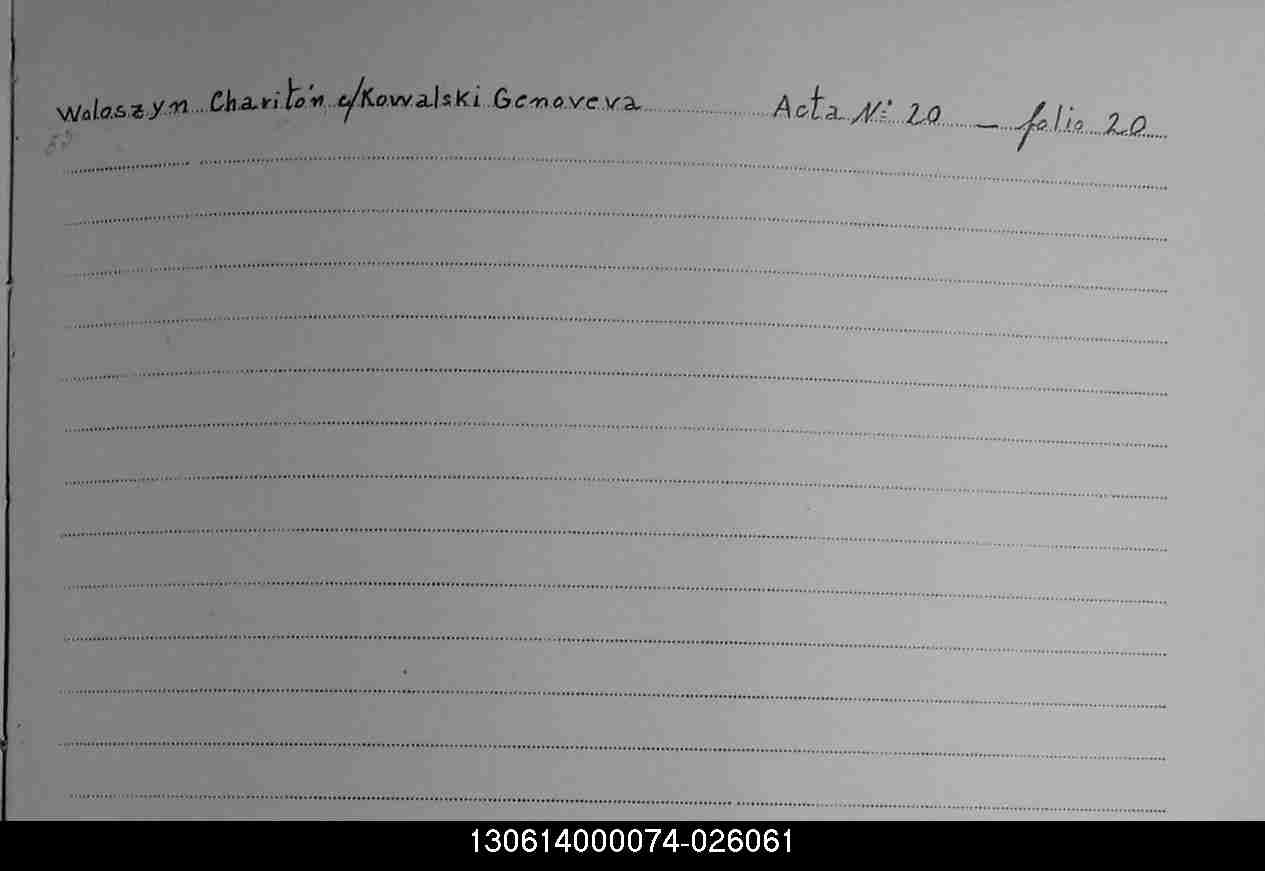 Woloszyn Charitón c/Kowalski Genoveva Acta Nº 20 – folio 20
130614000074-026061